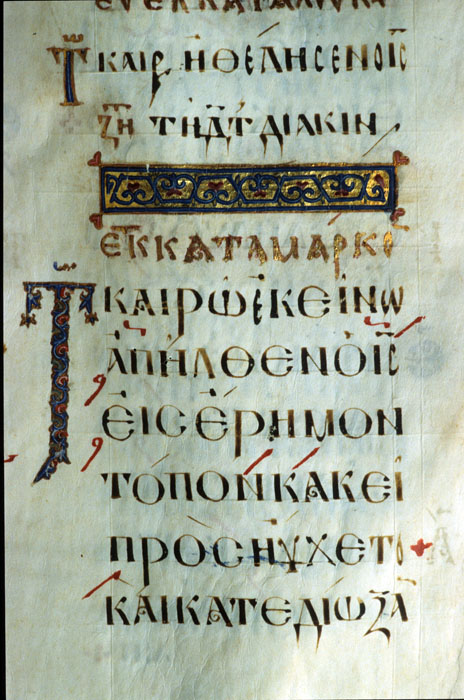 ΤΚΑΙΡ ΗΘΕΛΗϹΕΝΟΙϹ
ΖΗ ΤΗ Δ Τ ΔΙΑΚΙΝ
ΕΚ ΚΑΤΑ ΜΑΡΚΟ
ΤΚΑΙΡΩ ΕΚΕΙΝΩ
ΑΠΗΛΘΕΝ Ο ΙϹ
ΕΙϹ ΕΡΗΜΟΝ
ΤΟΠΟΝ ΚΑΚΕΙ
ΠΡΟϹΗΥΧΕΤΟ
ΚΑΙ ΚΑΤΕΔΙΩΞΑ